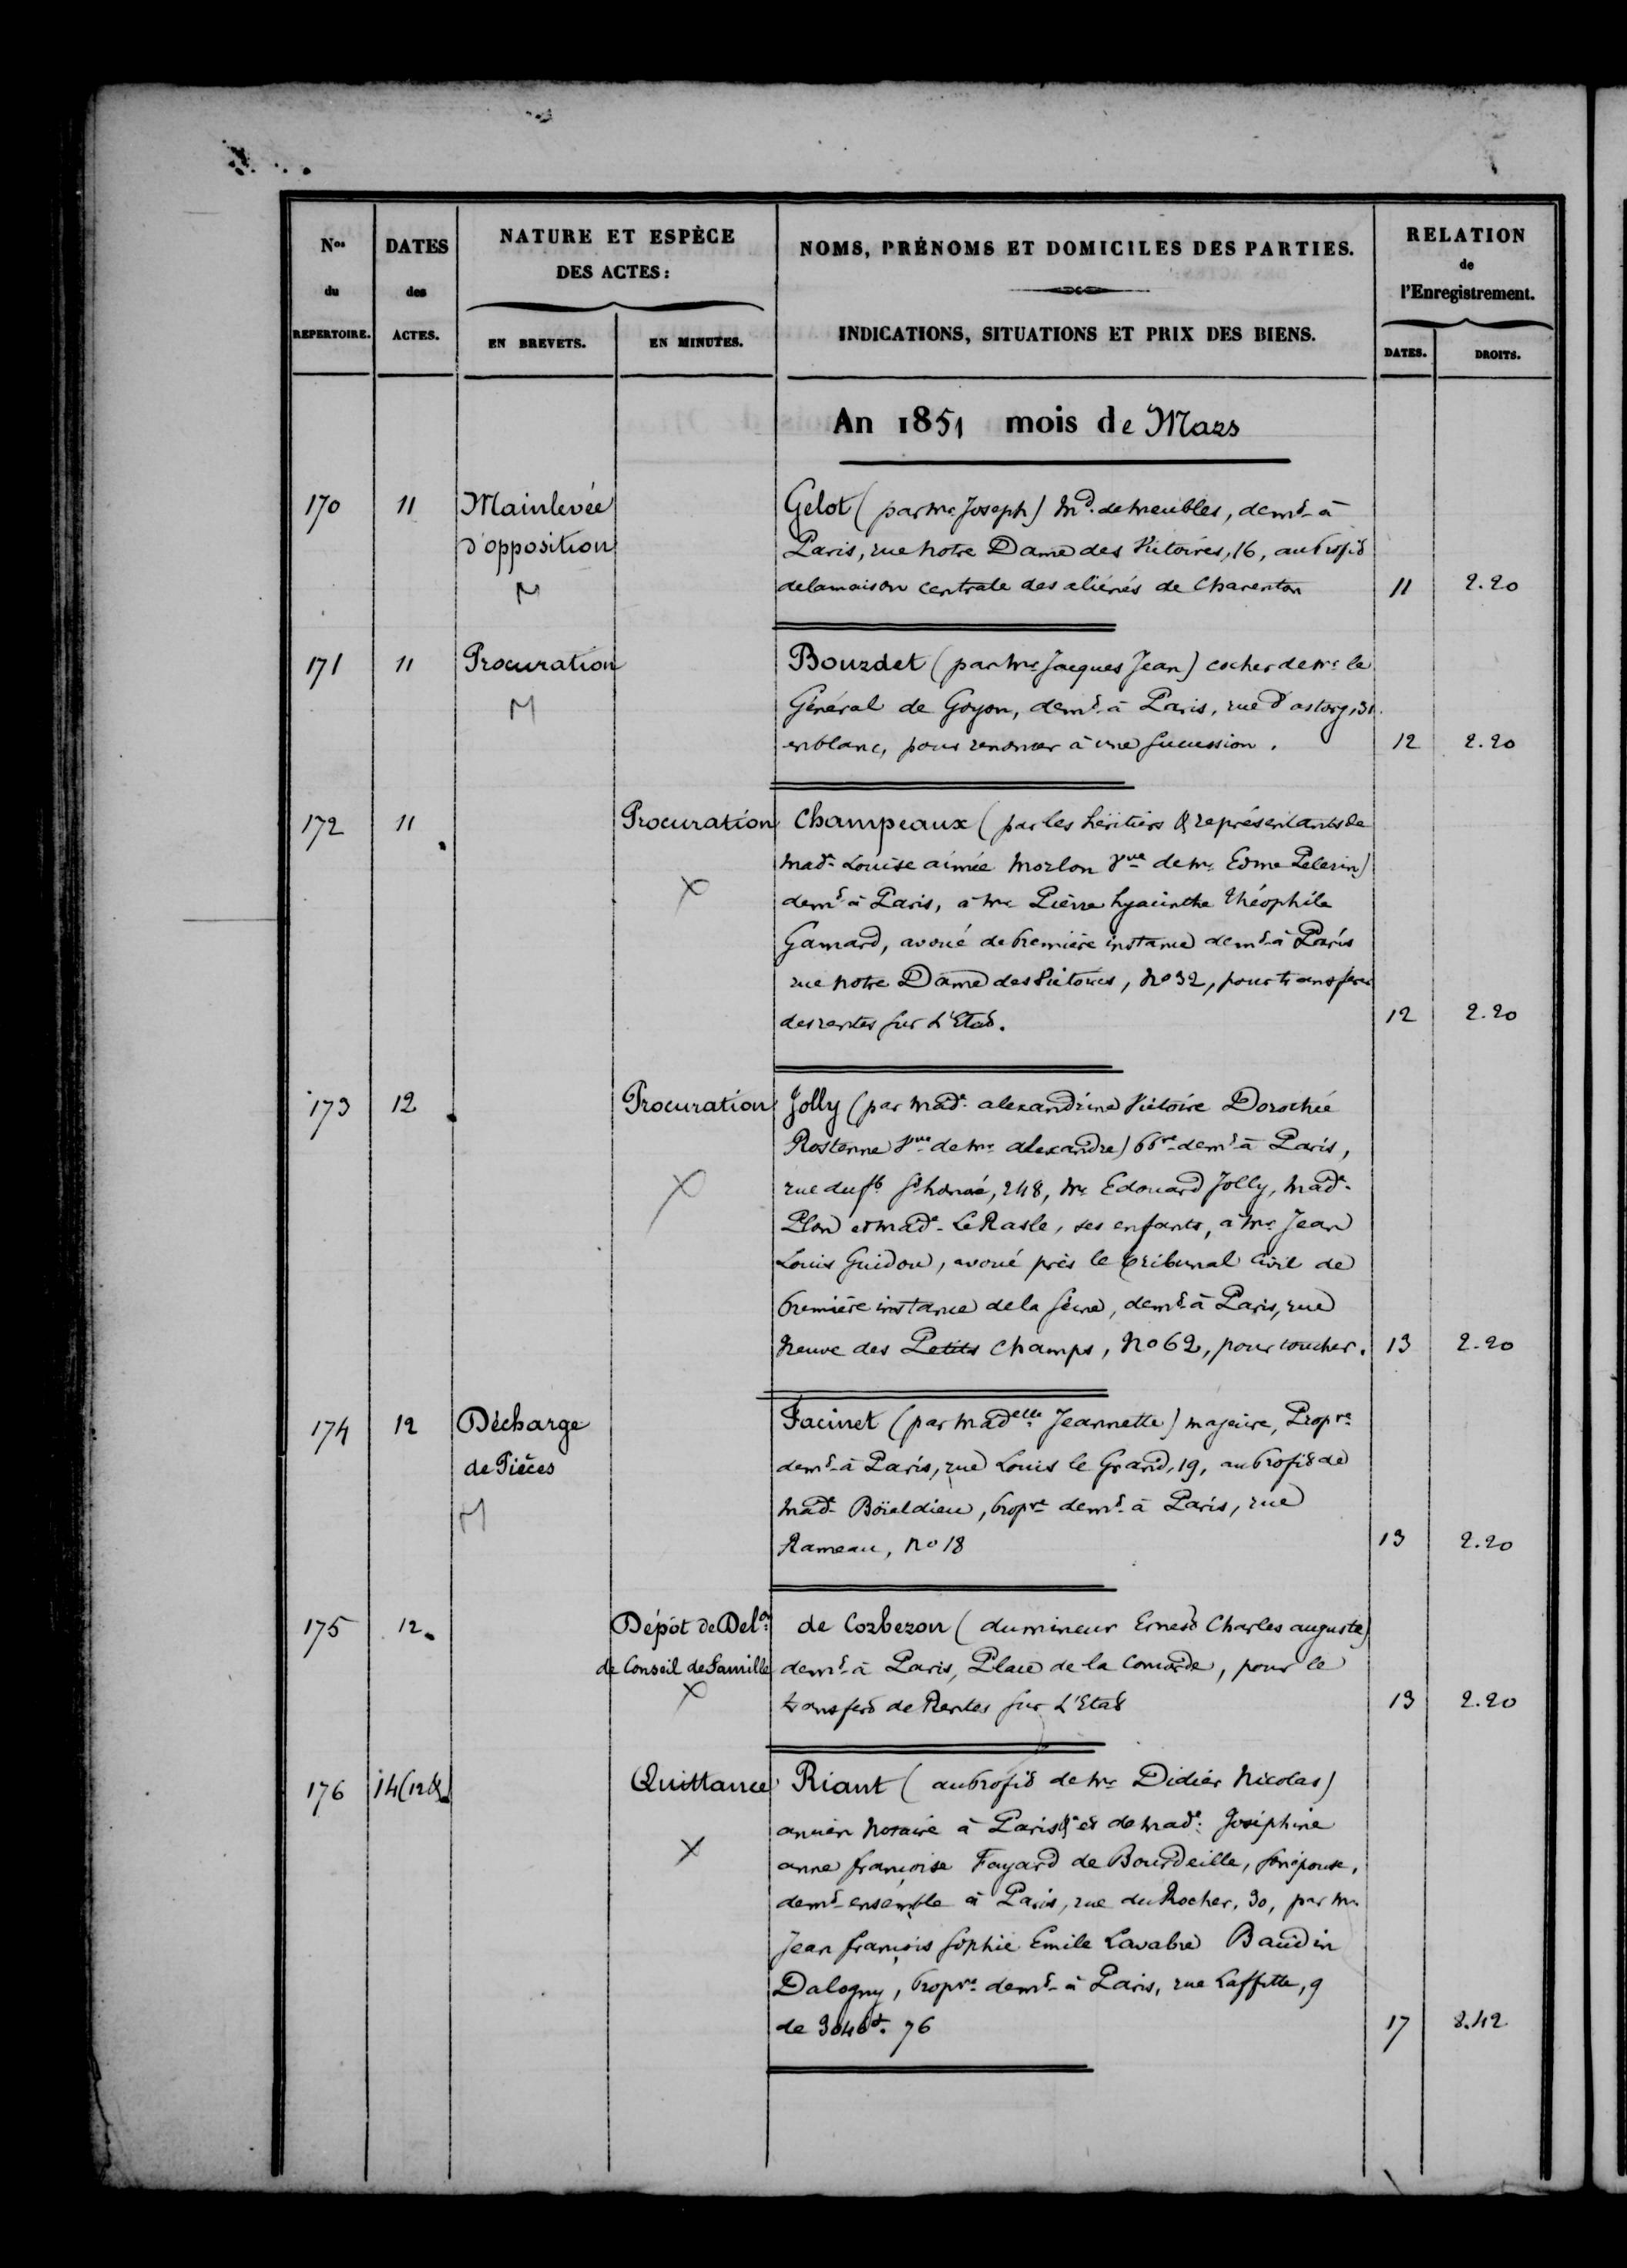 Nos du REPERTOIRE.
DATES des ACTES.
NATURE ET ESPÈCE DES ACTES:
EN BREVETS.
EN MINUTES.
NOMS, PRÉNOMS ET DOMICILES DES PARTIES.
INDICATIONS, SITUATIONS ET PRIX DES BIENS.
RELATION de l'Enregistrement.
DATES.
DROITS.
An 1851 mois de Mars
170 11 Mainlevée Gelot (par Mr. Joseph) Md. de meubles, demt. à
d'opposition Paris, rue Notre Dame des Victoires, 16, au profit
M de la maison centrale des aliénés de Charenton 11 2.20
171 11 Procuration Bourdet (par Mr. Jacques Jean) cocher de Mr. le
M Général de Goyon, demt. à Paris, rue d'astorg, 31.
en blanc, pour renoncer à une succession. 12 2.20
172 11 Procuration Champeaux (par les héritiers & représentants de
Made. Louise aimée Morlon Vve. de Mr. Edme Pelerin)
X demt. à Paris, à Mr. Pierre hyacinthe Théophile
Gamard, avoué de première instance demt. à Paris
rue Notre Dame des Victoires, No 32, pour transférer
des rentes sur L'Etat. 12 2.20
173 12 Procuration Jolly (par Made. alexandrine Victoire Dorothée
Rostenne Vve. de Mr. alexandre) ppre. demt. à Paris,
X rue du fb. St honoré, 248, Mr. Edouard Jolly, Made.
Plon et Made. Le Rasle, ses enfants, à Mr. Jean
Louis Guidou, avoué près le tribunal Civil de
première instance de la Seine, demt. à Paris, rue
Neuve des Petits Champs, No 62, pour toucher. 13 2.20
174 12 Décharge Facinet (par Madelle. Jeannette) majeure, Propre.
de Pièces demt. à Paris, rue Louis le Grand, 19, au profit de
M Made. Boïeldieu, propre. demt. à Paris, rue
Rameau, No 18 13 2.20
175 12 Dépôt de Delon. de Corbezon (du mineur Ernest Charles auguste)
de Conseil de Famille demt. à Paris, Place de la Concorde, pour le
X transfert de Rentes sur L'Etat 13 2.20
176 14 (12 & Quittance Riant (au profit de Mr. Didier Nicolas)
ancien Notaire à Paris & et de Made. Joséphine
X anne françoise Fayard de Bourdeille, son épouse,
demt. ensemble à Paris, rue du Rocher, 30, par Mr.
Jean françois Sophie Emile Lavabre Baudin
Dalogny, propre. demt. à Paris, rue Laffitte, 9
de 3046f. 76 17 8.42